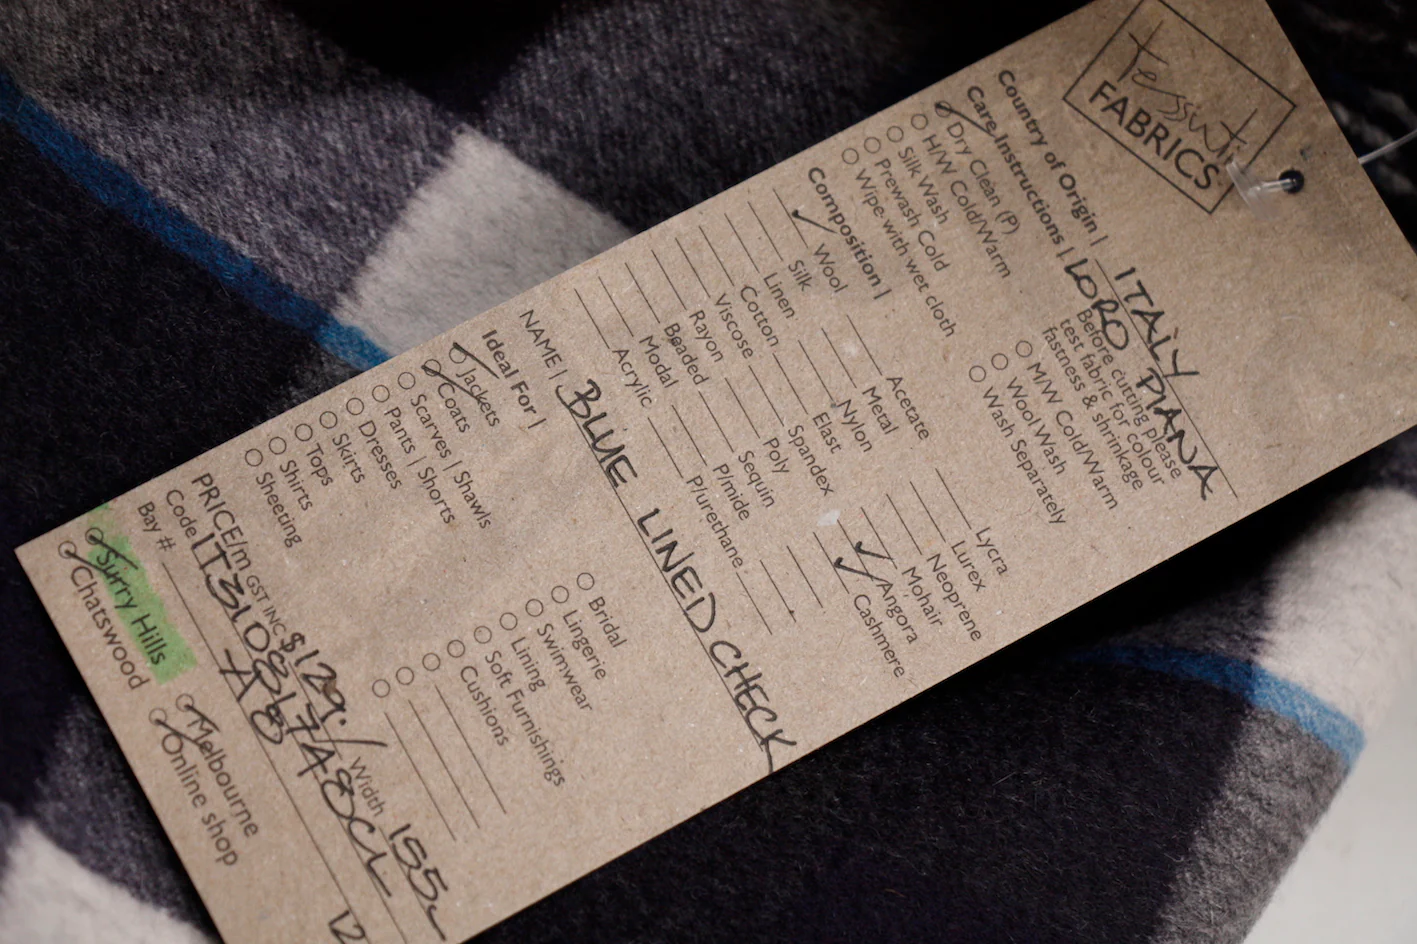 Tessuti
FABRICS
Country of Origin | ITALY
LORO PIANA
Care Instructions | Before cutting please
test fabric for colour
fastness & shrinkage
Dry Clean (P)
H/W Cold/Warm
Silk Wash
Prewash Cold
Wipe with wet cloth
M/W Cold/Warm
Wool Wash
Wash Separately
Composition |
Wool
Silk
Linen
Cotton
Viscose
Rayon
Beaded
Modal
Acrylic
Acetate
Metal
Nylon
Elast
Spandex
Poly
Sequin
P/mide
P/urethane
Lycra
Lurex
Neoprene
Mohair
Angora
Cashmere
NAME | BLUE LINED CHECK
Ideal For |
Jackets
Coats
Scarves | Shawls
Pants | Shorts
Dresses
Skirts
Tops
Shirts
Sheeting
Bridal
Lingerie
Swimwear
Lining
Soft Furnishings
Cushions
PRICE/m GST INC $129. Width 155
Code
Bay # A8
Surry Hills
Chatswood
Melbourne
Online shop
12